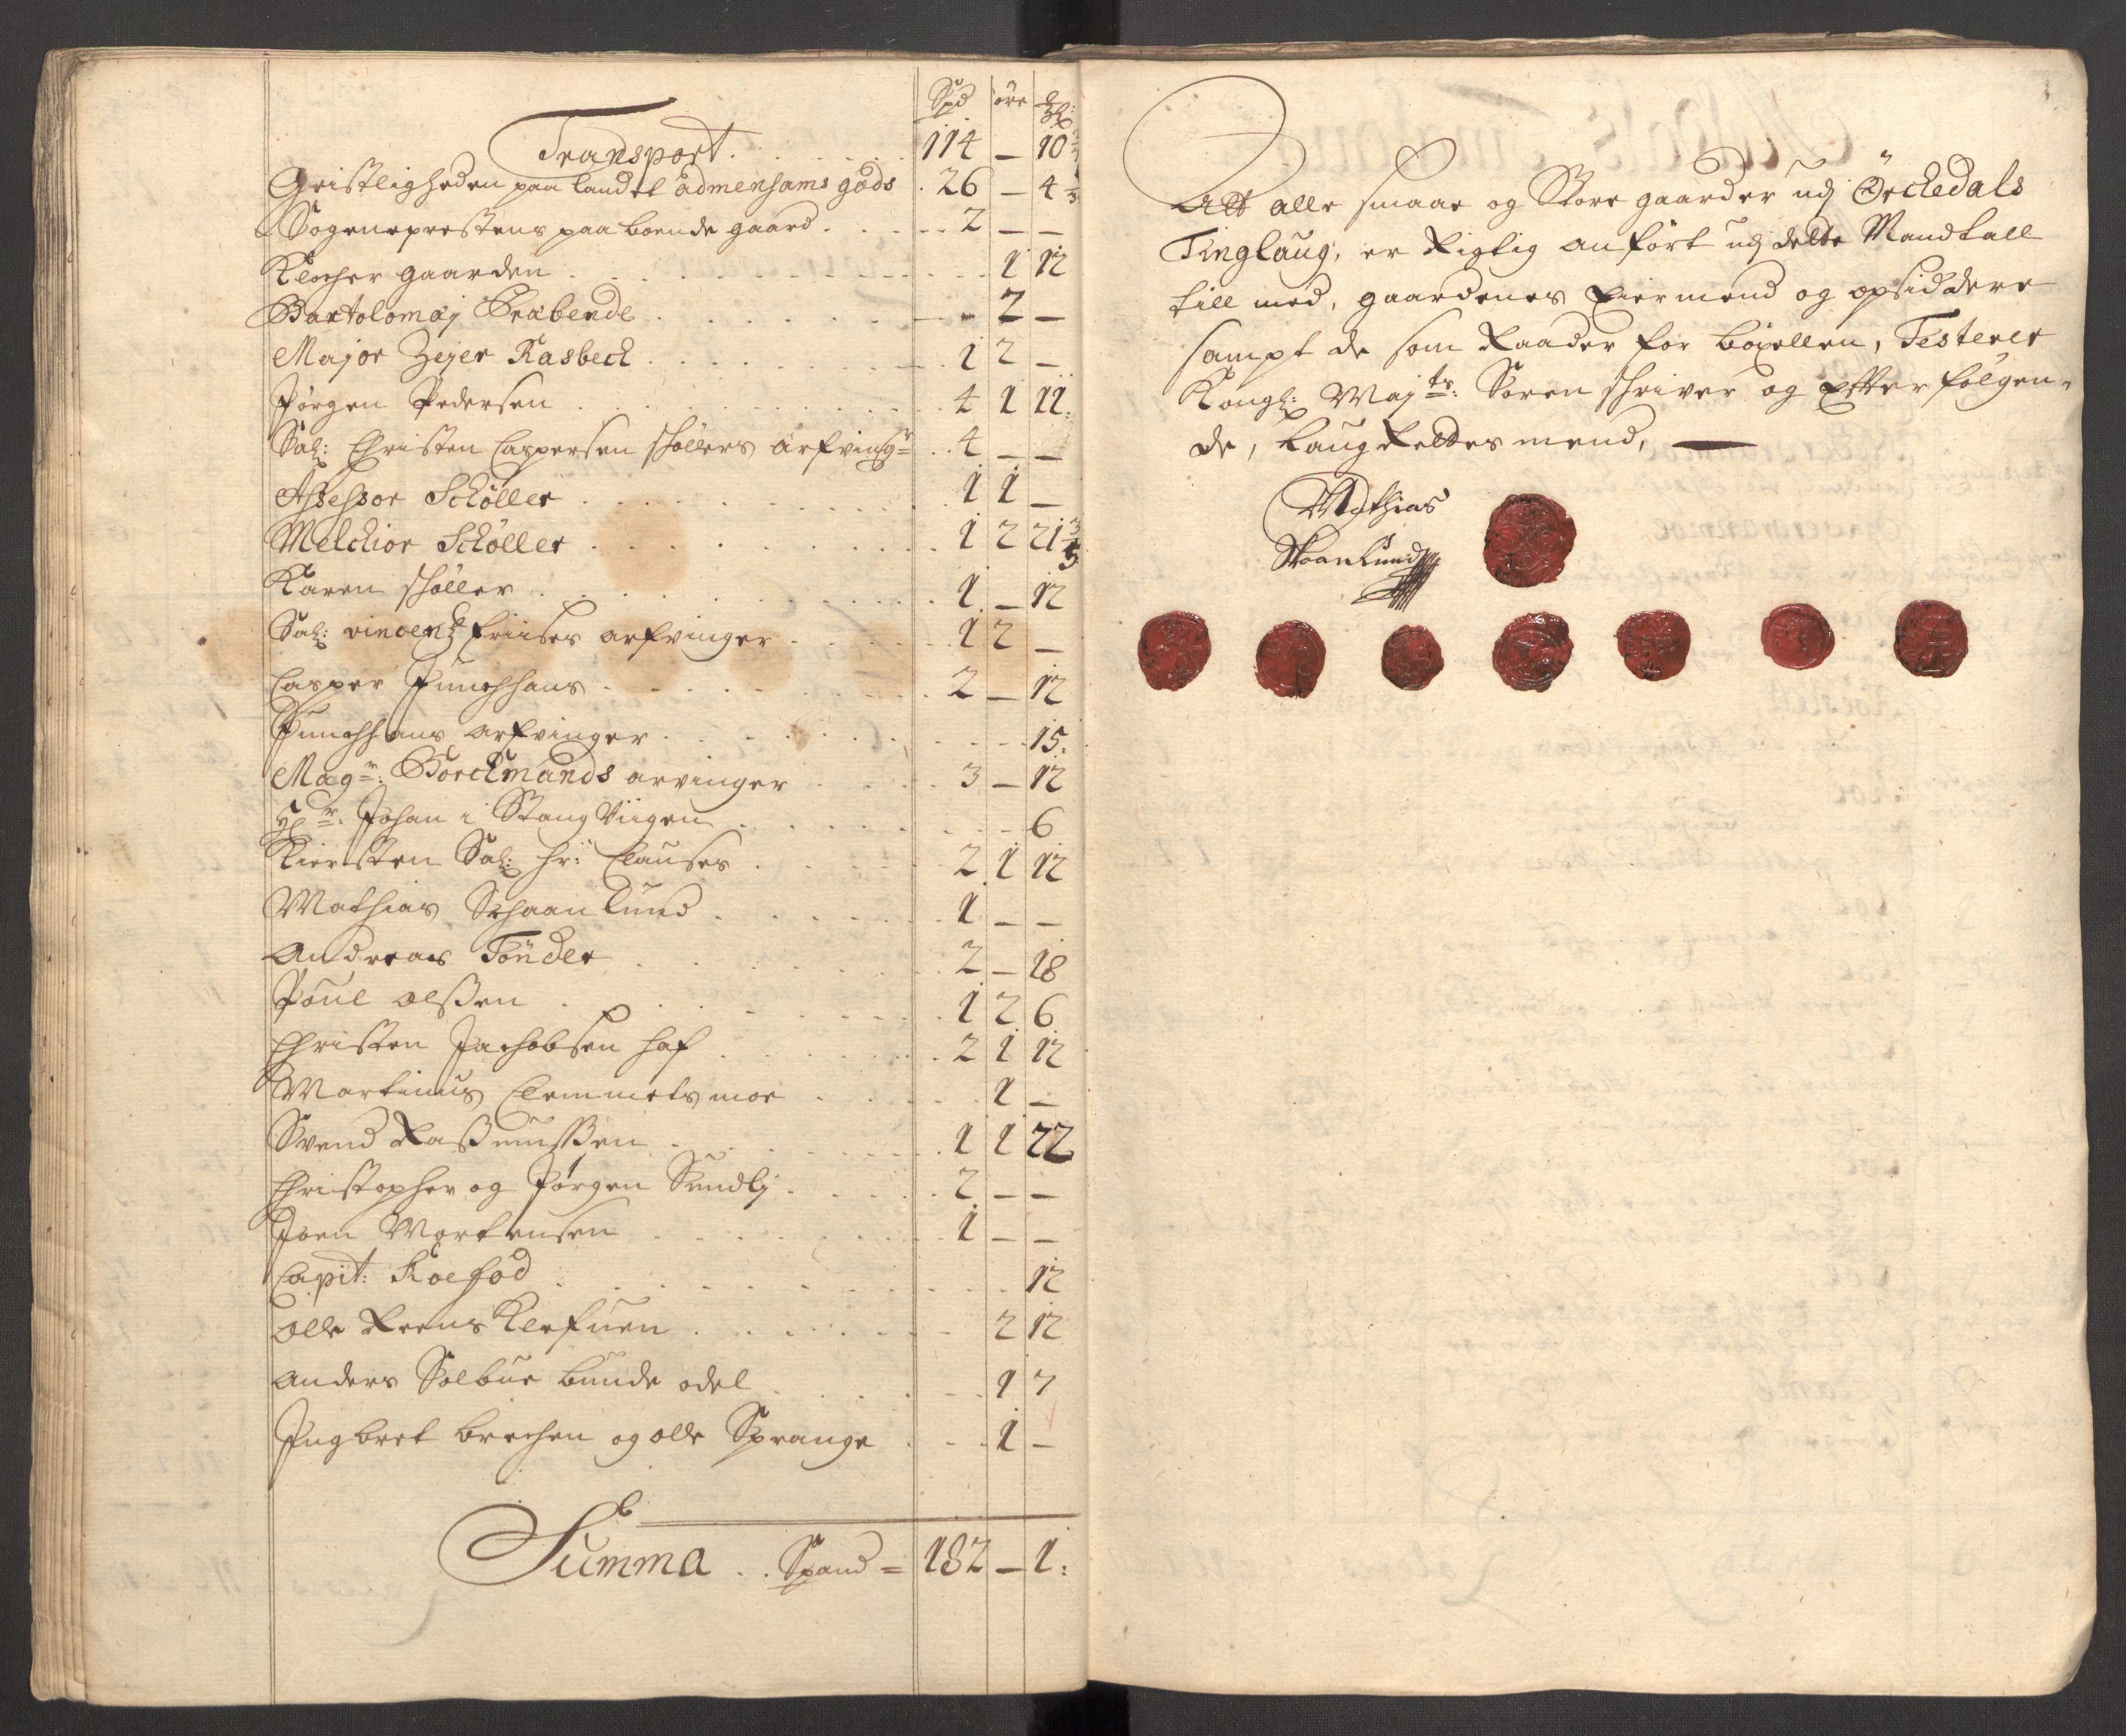 Spd öre Mkl:
Transport . . . . . 114 – 10
Geistligheden paa landet admensams gåds . 26 – 4
Sogneprestens paa boende gaard . . . . 2 – –
Klocher gaarden . . . . . 1 12
Bartolomæj Præbende . . . . . 2 –
Major Zejer Rasbech . . . . . 1 2 –
Jørgen Pedersen . . . . . 4 1 11
Sal: Christen Caspersen schøllers arfving: . . 4 – –
Assessor Schøller . . . . . 1 1 –
Melchior Schøller . . . . . 1 2 21 3/5
Karen schøller . . . . . 1 – 12
Sal: vincentz friises arfvinger . . . . 1 2 –
Casper Junchhans . . . . . 2 – 12
Junchhans arfvinger . . . . . 15
Mag:r Borchmands arvinger . . . . 3 – 12
Hr: Johan i Stang Viigen . . . . . 6
Kiersten Sal: hr: Clauses . . . . . 2 1 12
Mathias Schaanlund . . . . . 1 – –
Andreas Tönder . . . . . 2 – 18
Poul olßen . . . . . 1 2 6
Christen Jachobsen haf . . . . . 2 1 12
Martinus Clemmetsmoe . . . . . 1 –
Svend Raßmußen . . . . . 1 1 22
Christopher og Jørgen Sundlj . . . . . 2 – –
Joen Mortensen . . . . . 1 – –
Capit: Koefod . . . . . 12
olle Reens Klefuen . . . . . 2 12
anders Solbue bunde odel . . . . . 1 7
Ingbret brechen og olle Sprange . . . 1 –
Summa . . Spand = 182 – 1:
Att alle smaae og Store gaarder udj Örchedals
Tinglaug, er Rigtig anført udj dette Mandtall
till med, gaardenes Eiermend og opsiddere
sampt de som Raader for böxellen, Testerer
Kongl: Majts: Soren schriver og Efter følgen-
de, Laug Rettes mend,
Mathias
Skaanlund